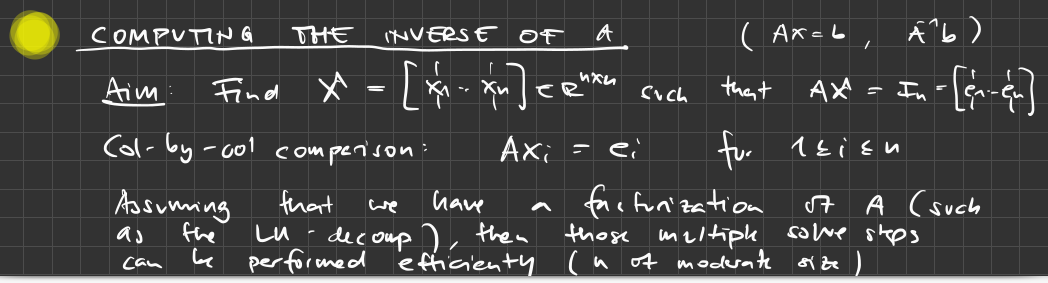 COMPUTING THE INVERSE OF A ( Ax = b , A⁻¹b )
Aim: Find X = [x₁ ... xₙ] ∈ ℝⁿˣⁿ such that AX = Iₙ = [e₁ ... eₙ]
Col-by-col comparison: Axᵢ = eᵢ for 1 ≤ i ≤ n
Assuming that we have a factorization of A (such
as the LU-decomp), then those multiple solve steps
can be performed efficiently (n of moderate size)